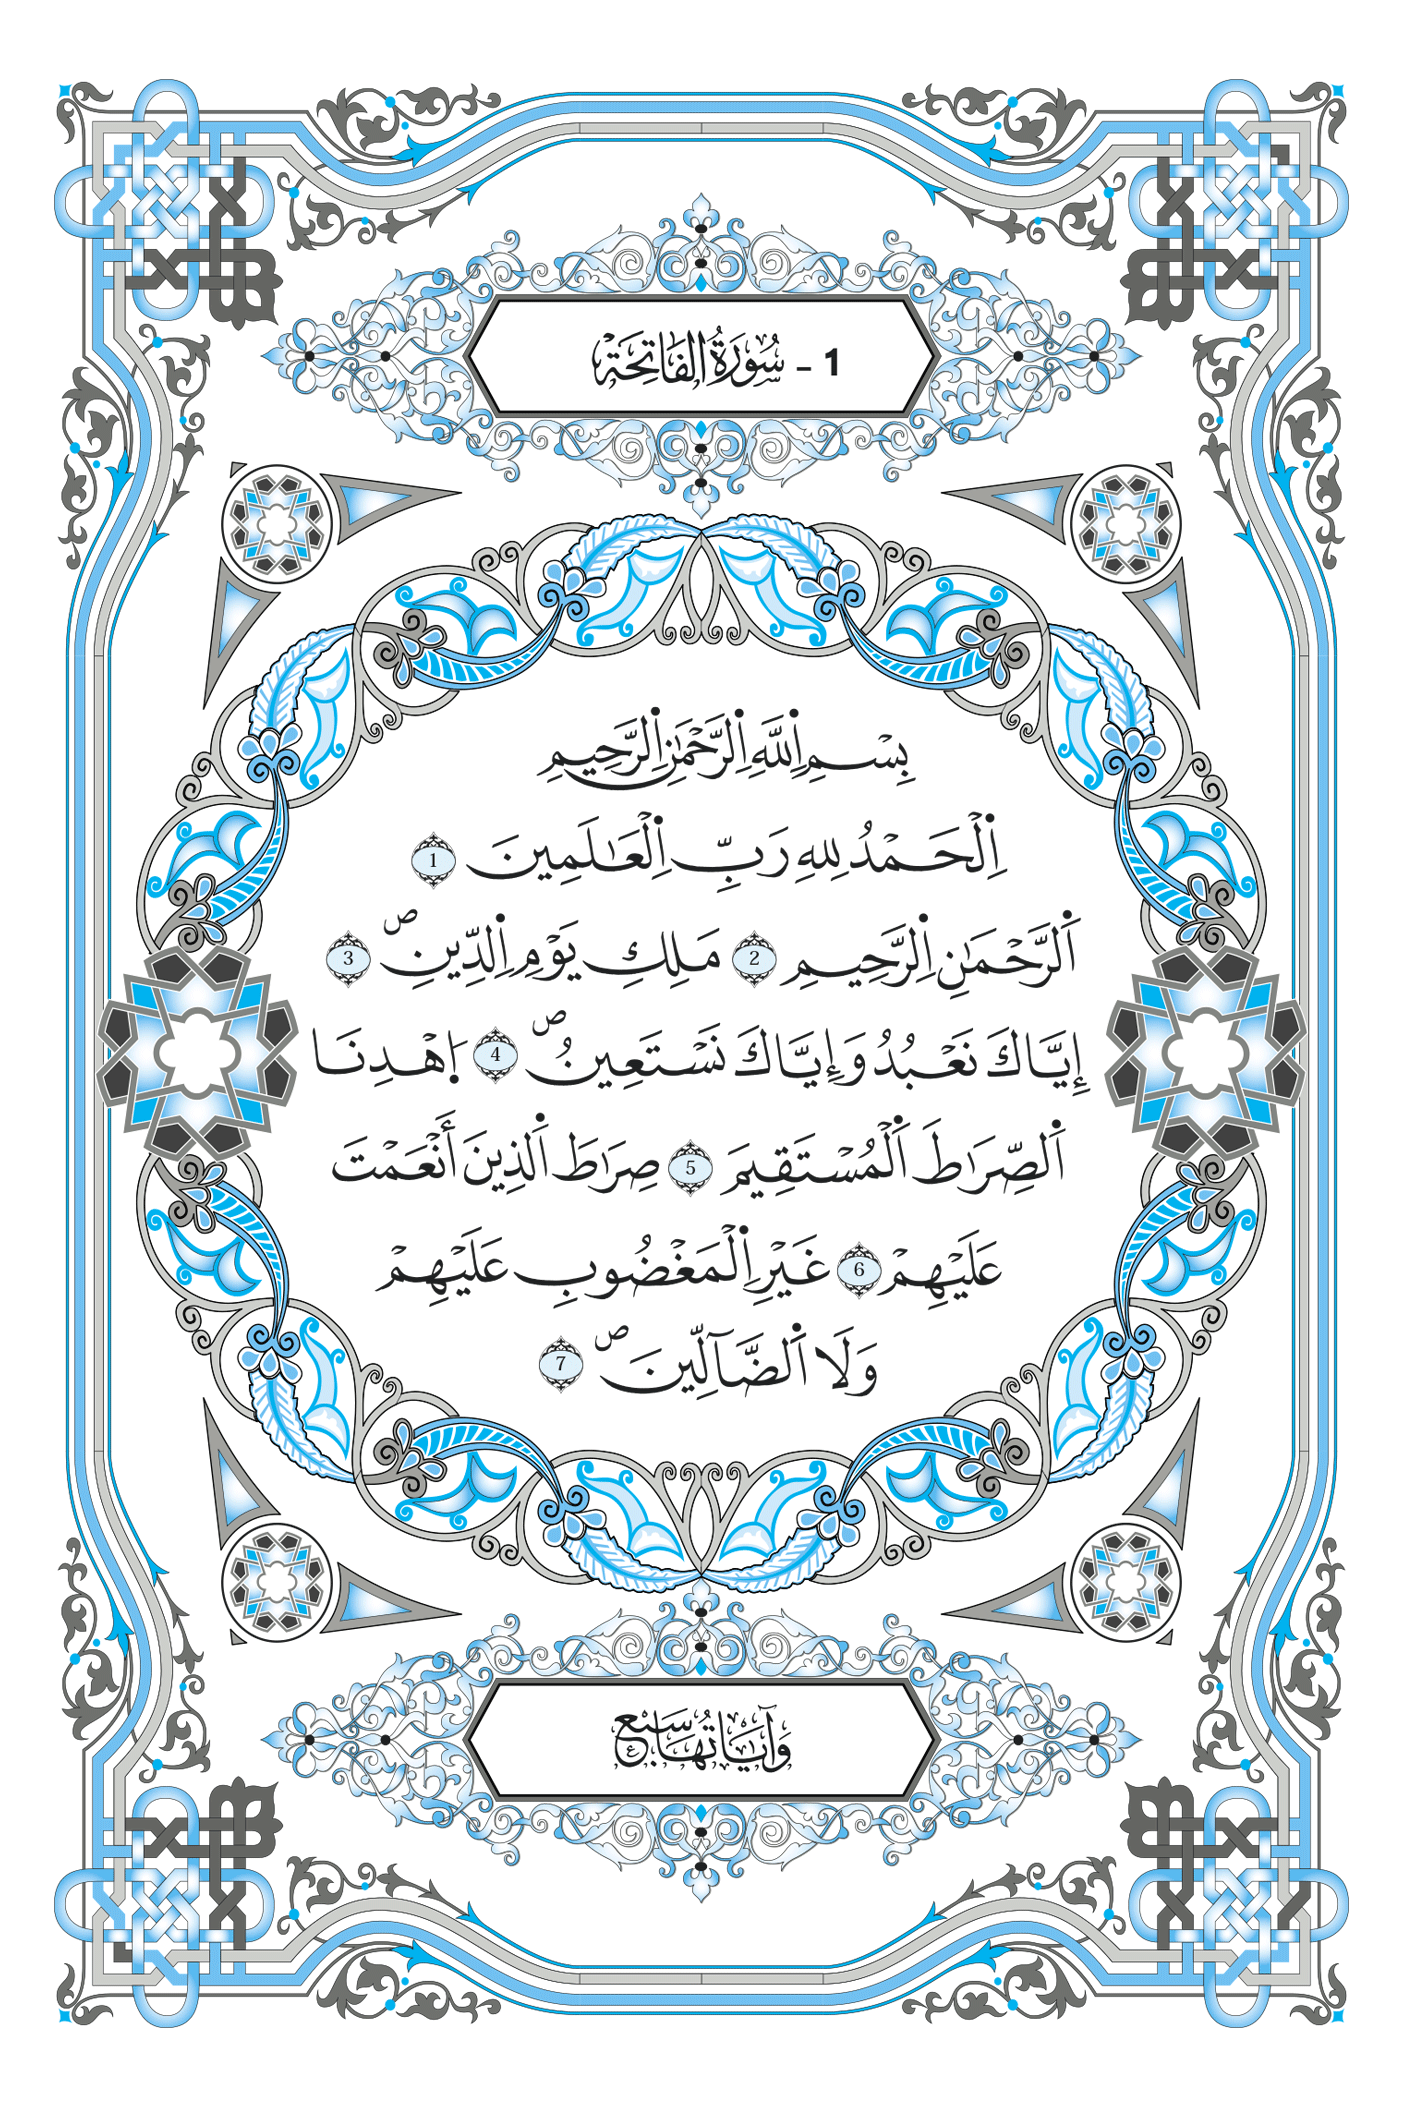 1 - سُورَةُ الْفَاتِحَةِ
بِسْمِ اِ۬للَّهِ اِ۬لرَّحْمَٰنِ اِ۬لرَّحِيمِ
اِ۬لْحَمْدُ لِلهِ رَبِّ اِ۬لْعَٰلَمِينَ 1
اَ۬لرَّحْمَٰنِ اِ۬لرَّحِيمِ 2 مَلِكِ يَوْمِ اِ۬لدِّينِ ص 3
إِيَّاكَ نَعْبُدُ وَإِيَّاكَ نَسْتَعِينُ ص 4 اَ۪هْدِنَا
اَ۬لصِّرَٰطَ اَ۬لْمُسْتَقِيمَ 5 صِرَٰطَ اَ۬لذِينَ أَنْعَمْتَ
عَلَيْهِمْ 6 غَيْرِ اِ۬لْمَغْضُوبِ عَلَيْهِمْ
وَلَا اَ۬لضَّآلِّينَ ص 7
وَآيَاتُهَا سَبْع